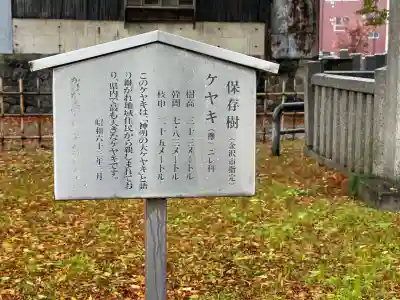 保存樹（金沢市指定）
ケヤキ（欅）ニレ科
樹高 三十三メートル
幹周 七・八三メートル
枝巾 二十五メートル
このケヤキは、「神明の大ケヤキ」と語
り継がれ地域住民から親しまれてお
り、県内で最も大きなケヤキです。
昭和六十二年三月